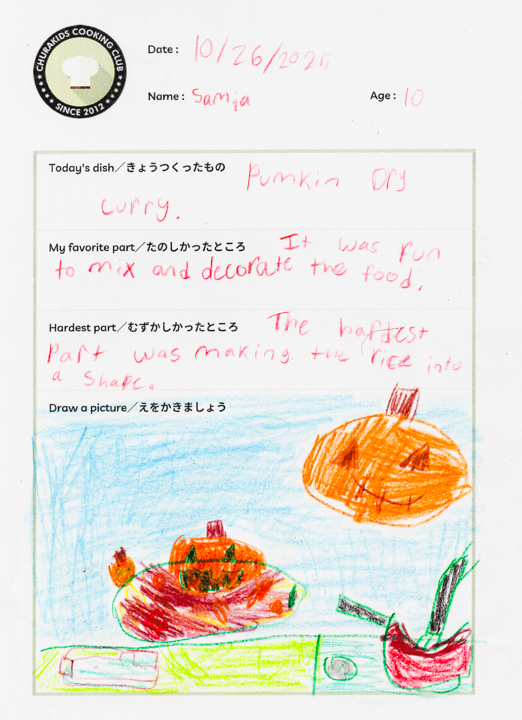 CHURAKIDS COOKING CLUB
SINCE 2012
Date: 10/26/2025
Name: Samja
Age: 10
Today's dish／きょうつくったもの Pumkin Dry
curry.
My favorite part／たのしかったところ It was fun
to mix and decorate the food.
Hardest part／むずかしかったところ The hardest
Part was making the rice into
a shape.
Draw a picture／えをかきましょう